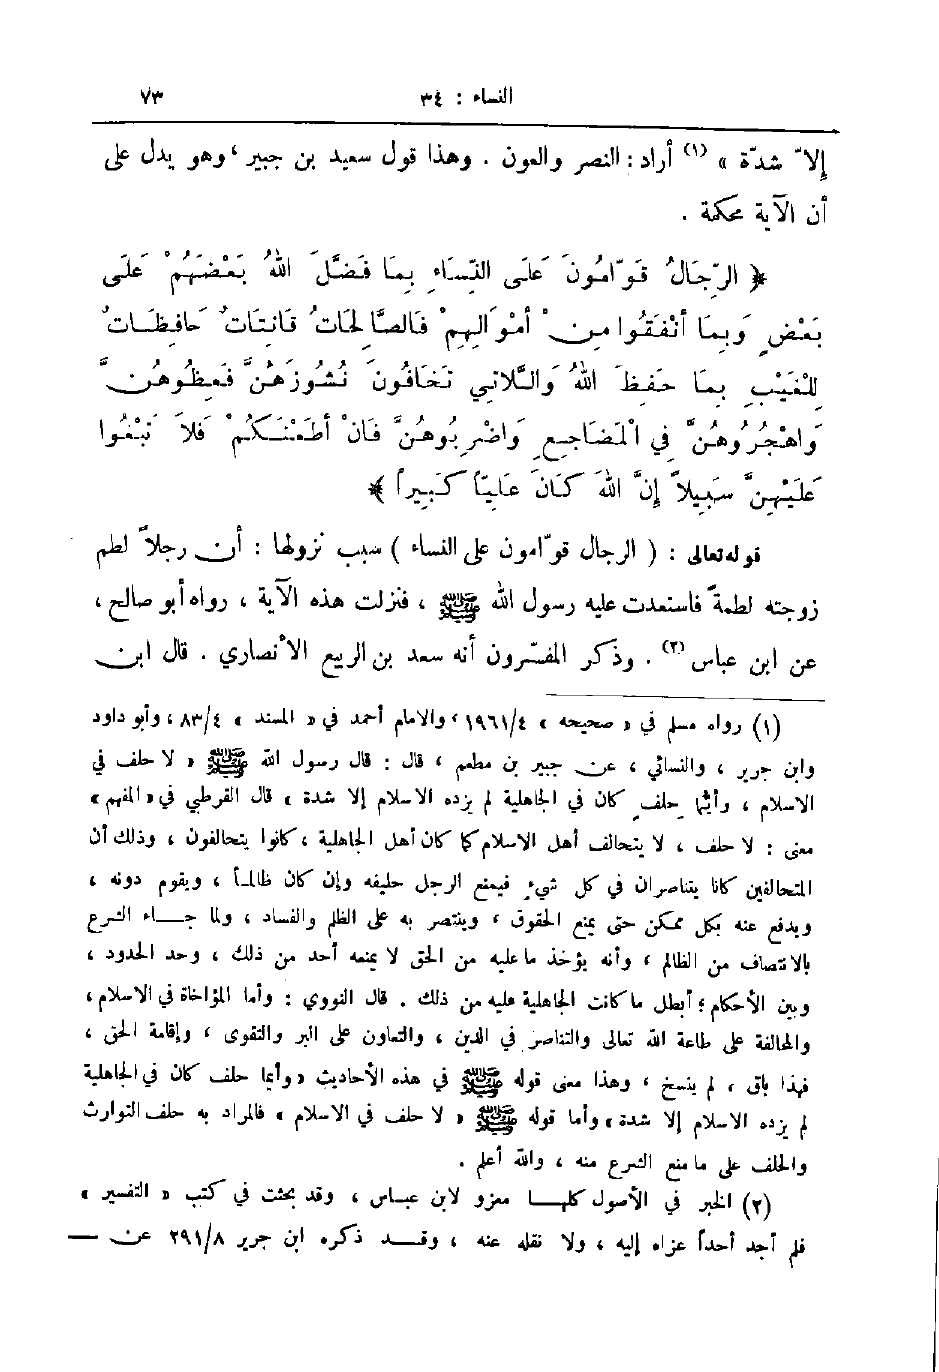 النساء : ٣٤ ٧٣
إلاّ شدّة » (١) أراد : النصر والعون . وهذا قول سعيد بن جبير ، وهو يدل على
أن الآية محكمة .
﴿ الرِّجَالُ قَوَّامُونَ عَلَى النِّسَاءِ بِمَا فَضَّلَ اللهُ بَعْضَهُمْ عَلَى
بَعْضٍ وَبِمَا أَنْفَقُوا مِنْ أَمْوَالِهِمْ فَالصَّالِحَاتُ قَانِتَاتٌ حَافِظَاتٌ
لِلْغَيْبِ بِمَا حَفِظَ اللهُ وَاللَّاتِي تَخَافُونَ نُشُوزَهُنَّ فَعِظُوهُنَّ
وَاهْجُرُوهُنَّ فِي الْمَضَاجِعِ وَاضْرِبُوهُنَّ فَإِنْ أَطَعْنَكُمْ فَلاَ تَبْغُوا
عَلَيْهِنَّ سَبِيلاً إِنَّ اللهَ كَانَ عَلِيّاً كَبِيراً ﴾
قوله تعالى : ( الرجال قوّامون على النساء ) سبب نزولها : أن رجلاً لطم
زوجته لطمةً فاستعدت عليه رسول الله ﷺ ، فنزلت هذه الآية ، رواه أبو صالح ،
عن ابن عباس (٢) . وذكر المفسّرون أنه سعد بن الربيع الأنصاري . قال ابن
(١) رواه مسلم في « صحيحه » ١٩٦١/٤ ، والامام أحمد في « المسند » ٨٣/٤ ، وأبو داود
وابن جرير ، والنسائي ، عن جبير بن مطعم ، قال : قال رسول الله ﷺ « لا حلف في
الاسلام ، وأيُّما حِلفٍ كان في الجاهلية لم يزده الاسلام إلا شدة » قال القرطبي في « المفهم »
معنى : لا حلف ، لا يتحالف أهل الاسلام كما كان أهل الجاهلية ، كانوا يتحالفون ، وذلك أن
المتحالفين كانا يتناصران في كل شيء فيمنع الرجل حليفه وإن كان ظالماً ، ويقوم دونه ،
ويدفع عنه بكل ممكن حتى يمنع الحقوق ، وينتصر به على الظلم والفساد ، ولما جاء الشرع
بالانتصاف من الظالم ، وأنه يؤخذ ما عليه من الحق لا يمنعه أحد من ذلك ، وحد الحدود ،
وبين الأحكام ؛ أبطل ما كانت الجاهلية عليه من ذلك . قال النووي : وأما المؤاخاة في الاسلام ،
والمحالفة على طاعة الله تعالى والتناصر في الدين ، والتعاون على البر والتقوى ، وإقامة الحق ،
فهذا باق ، لم ينسخ ، وهذا معنى قوله ﷺ في هذه الأحاديث « وأيما حلف كان في الجاهلية
لم يزده الاسلام إلا شدة » وأما قوله ﷺ « لا حلف في الاسلام » فالمراد به حلف التوارث
والحلف على ما منع الشرع منه ، والله أعلم .
(٢) الخبر في الأصول كلها معزو لابن عباس ، وقد بحثت في كتب « التفسير »
فلم أجد أحداً عزاه إليه ، ولا نقله عنه ، وقد ذكره ابن جرير ٢٩١/٨ عن —